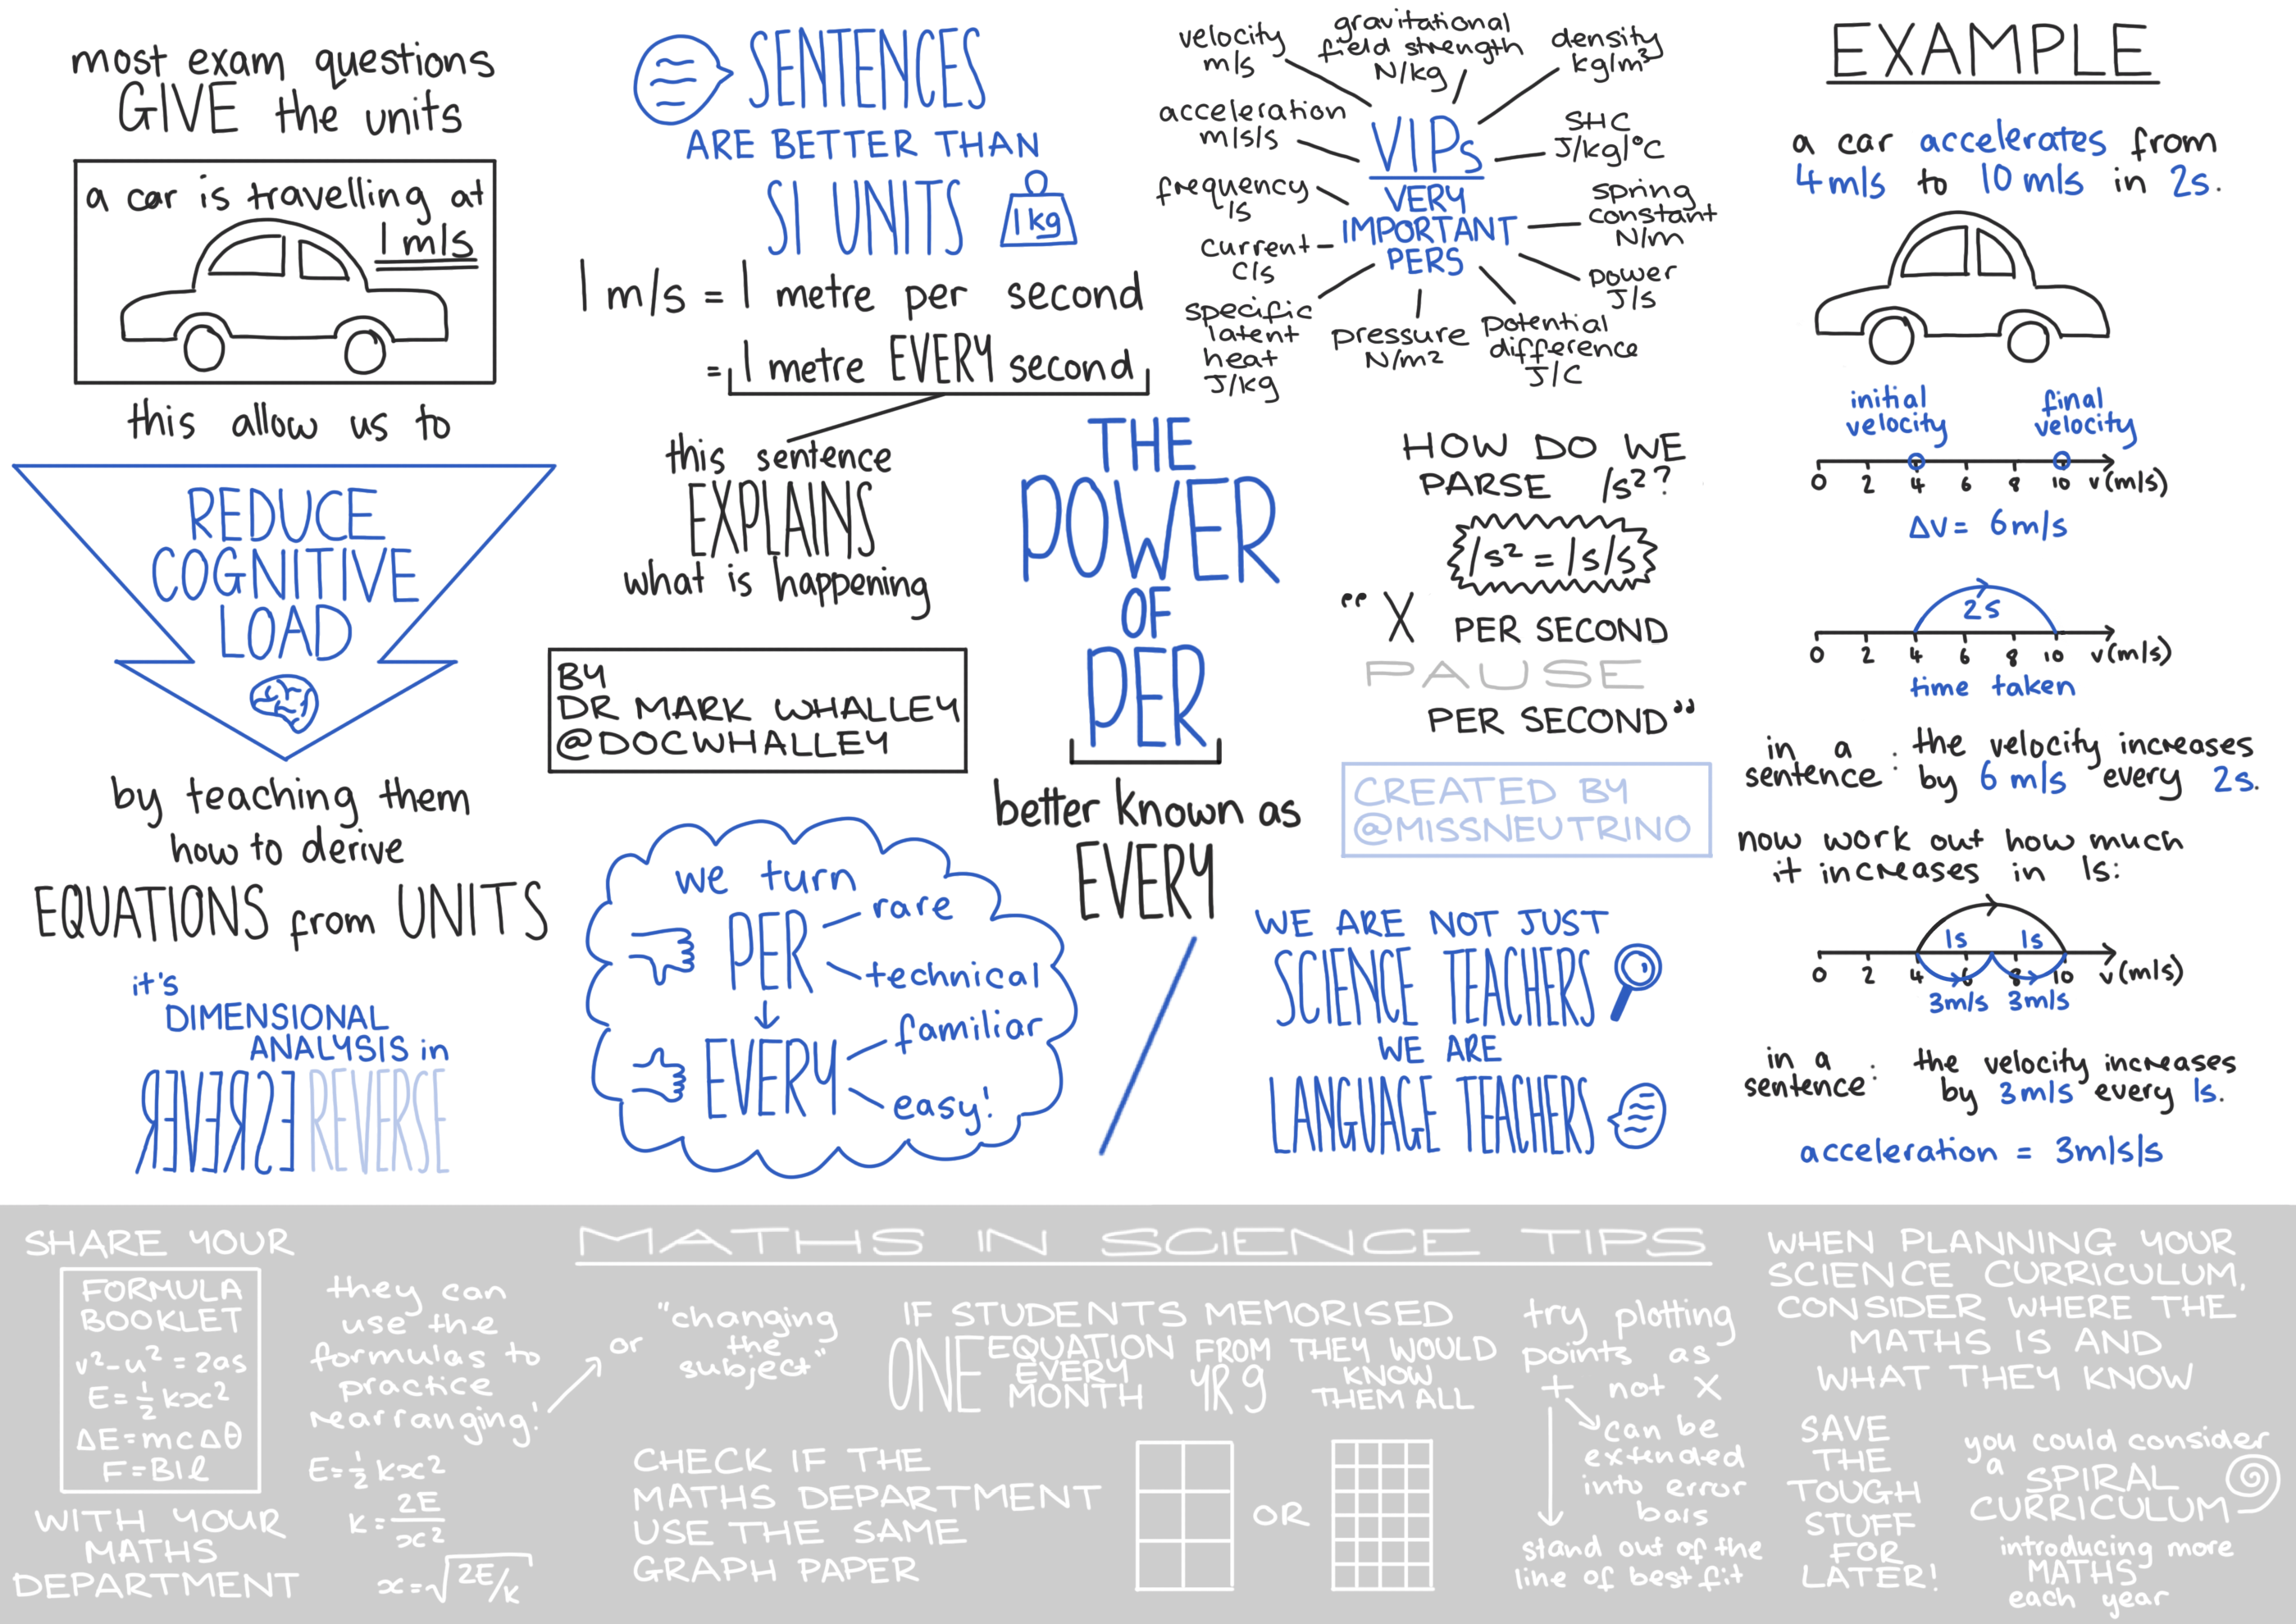 most exam questions
GIVE the units
a car is travelling at
1 m/s
this allow us to
REDUCE
COGNITIVE
LOAD
by teaching them
how to derive
EQUATIONS from UNITS
it's
DIMENSIONAL
ANALYSIS in
REVERSE REVERSE
SENTENCES
ARE BETTER THAN
SI UNITS
1 kg
1 m/s = 1 metre per second
= 1 metre EVERY second
this sentence
EXPLAINS
what is happening
BY
DR MARK WHALLEY
@DOCWHALLEY
we turn
PER
rare
technical
EVERY
familiar
easy!
THE
POWER
OF
PER
better known as
EVERY
/
VIPs
VERY
IMPORTANT
PERS
velocity
m/s
gravitational
field strength
N/kg
density
kg/m³
acceleration
m/s/s
SHC
J/kg/°C
frequency
/s
spring
constant
N/m
current
C/s
power
J/s
specific
latent
heat
J/kg
pressure
N/m²
potential
difference
J/C
HOW DO WE
PARSE /s²?
/s² = /s/s
“X PER SECOND
PAUSE
PER SECOND”
CREATED BY
@MISSNEUTRINO
WE ARE NOT JUST
SCIENCE TEACHERS
WE ARE
LANGUAGE TEACHERS
EXAMPLE
a car accelerates from
4m/s to 10 m/s in 2s.
initial
velocity
final
velocity
0 2 4 6 8 10 v(m/s)
Δv = 6m/s
2s
0 2 4 6 8 10 v(m/s)
time taken
in a
sentence :
the velocity increases
by 6 m/s every 2s.
now work out how much
it increases in 1s:
1s 1s
0 2 4 6 8 10 v(m/s)
3m/s 3m/s
in a
sentence:
the velocity increases
by 3m/s every 1s.
acceleration = 3m/s/s
MATHS IN SCIENCE TIPS
SHARE YOUR
FORMULA
BOOKLET
v²-u² = 2as
E = ½ kx²
ΔE = mcΔθ
F = BIl
WITH YOUR
MATHS
DEPARTMENT
they can
use the
formulas to
practice
rearranging!
E = ½ kx²
k = 2E/x²
x = √2E/k
or
"changing
the
subject"
IF STUDENTS MEMORISED
ONE EQUATION EVERY MONTH FROM YR 9 THEY WOULD KNOW THEM ALL
CHECK IF THE
MATHS DEPARTMENT
USE THE SAME
GRAPH PAPER
OR
try plotting
points as
+ not X
can be
extended
into error
bars
stand out of the
line of best fit
WHEN PLANNING YOUR
SCIENCE CURRICULUM,
CONSIDER WHERE THE
MATHS IS AND
WHAT THEY KNOW
SAVE
THE
TOUGH
STUFF
FOR
LATER!
you could consider
a SPIRAL
CURRICULUM
introducing more
MATHS
each year